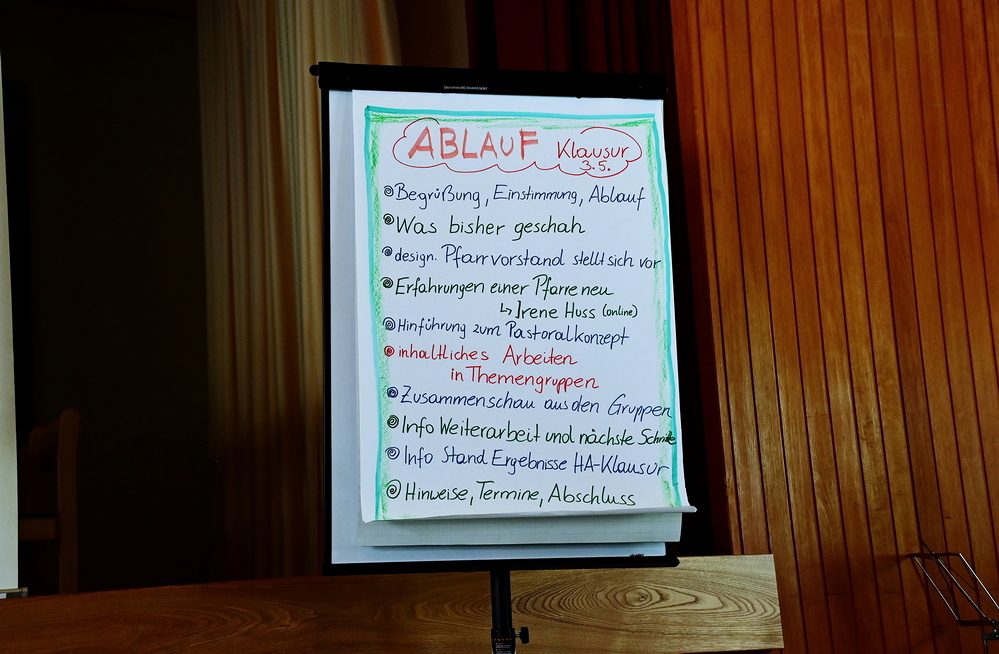 ABLAUF Klausur
3.5.
Begrüßung, Einstimmung, Ablauf
Was bisher geschah
design. Pfarrvorstand stellt sich vor
Erfahrungen einer Pfarre neu
↳ Irene Huss (online)
Hinführung zum Pastoralkonzept
inhaltliches Arbeiten
in Themengruppen
Zusammenschau aus den Gruppen
Info Weiterarbeit und nächste Schritte
Info Stand Ergebnisse HA-Klausur
Hinweise, Termine, Abschluss